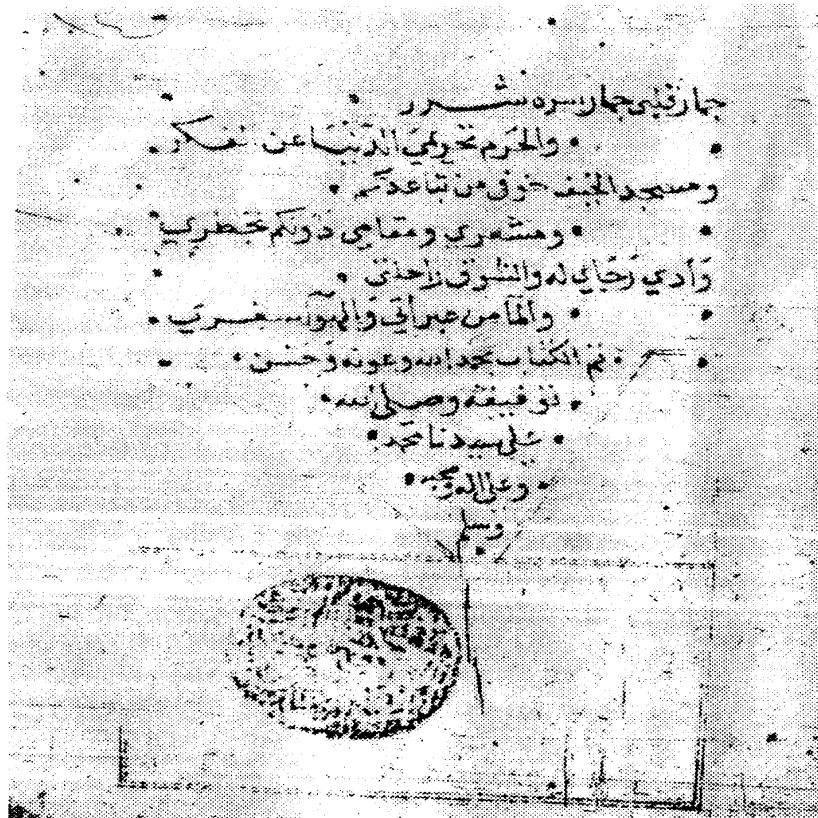 جمار قلبي جمار سره شرر
والحرم تحريمي الدنيا عن تفكر
ومسجد الخيف خوفي من تباعدكم
ومشعري ومقامي دونكم خطري
زادي رجاي له والشوق راحلتي
والما من عبراتي والهوا سفري
تم الكتاب بحمد الله وعونه وحسن
توفيقه وصلى الله
على سيدنا محمد
وعلى اله وصحبه
وسلم